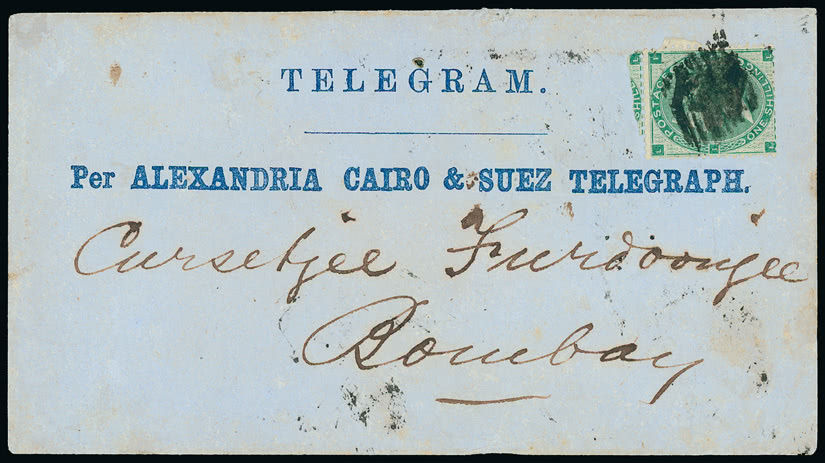 TELEGRAM.
Per ALEXANDRIA CAIRO & SUEZ TELEGRAPH.
Cursetjee Furdoonjee
Bombay
POSTAGE ONE SHILLING